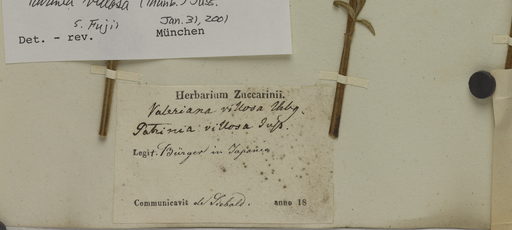 Patrinia villosa (Thunb.) Juss.
S. Fujii Jan. 31, 2001
Det. - rev. München
Herbarium Zuccarinii.
Valeriana villosa Thbg.
Patrinia villosa Juß.
Legit. Bürger in Japonia
Communicavit de Siebold. anno 18